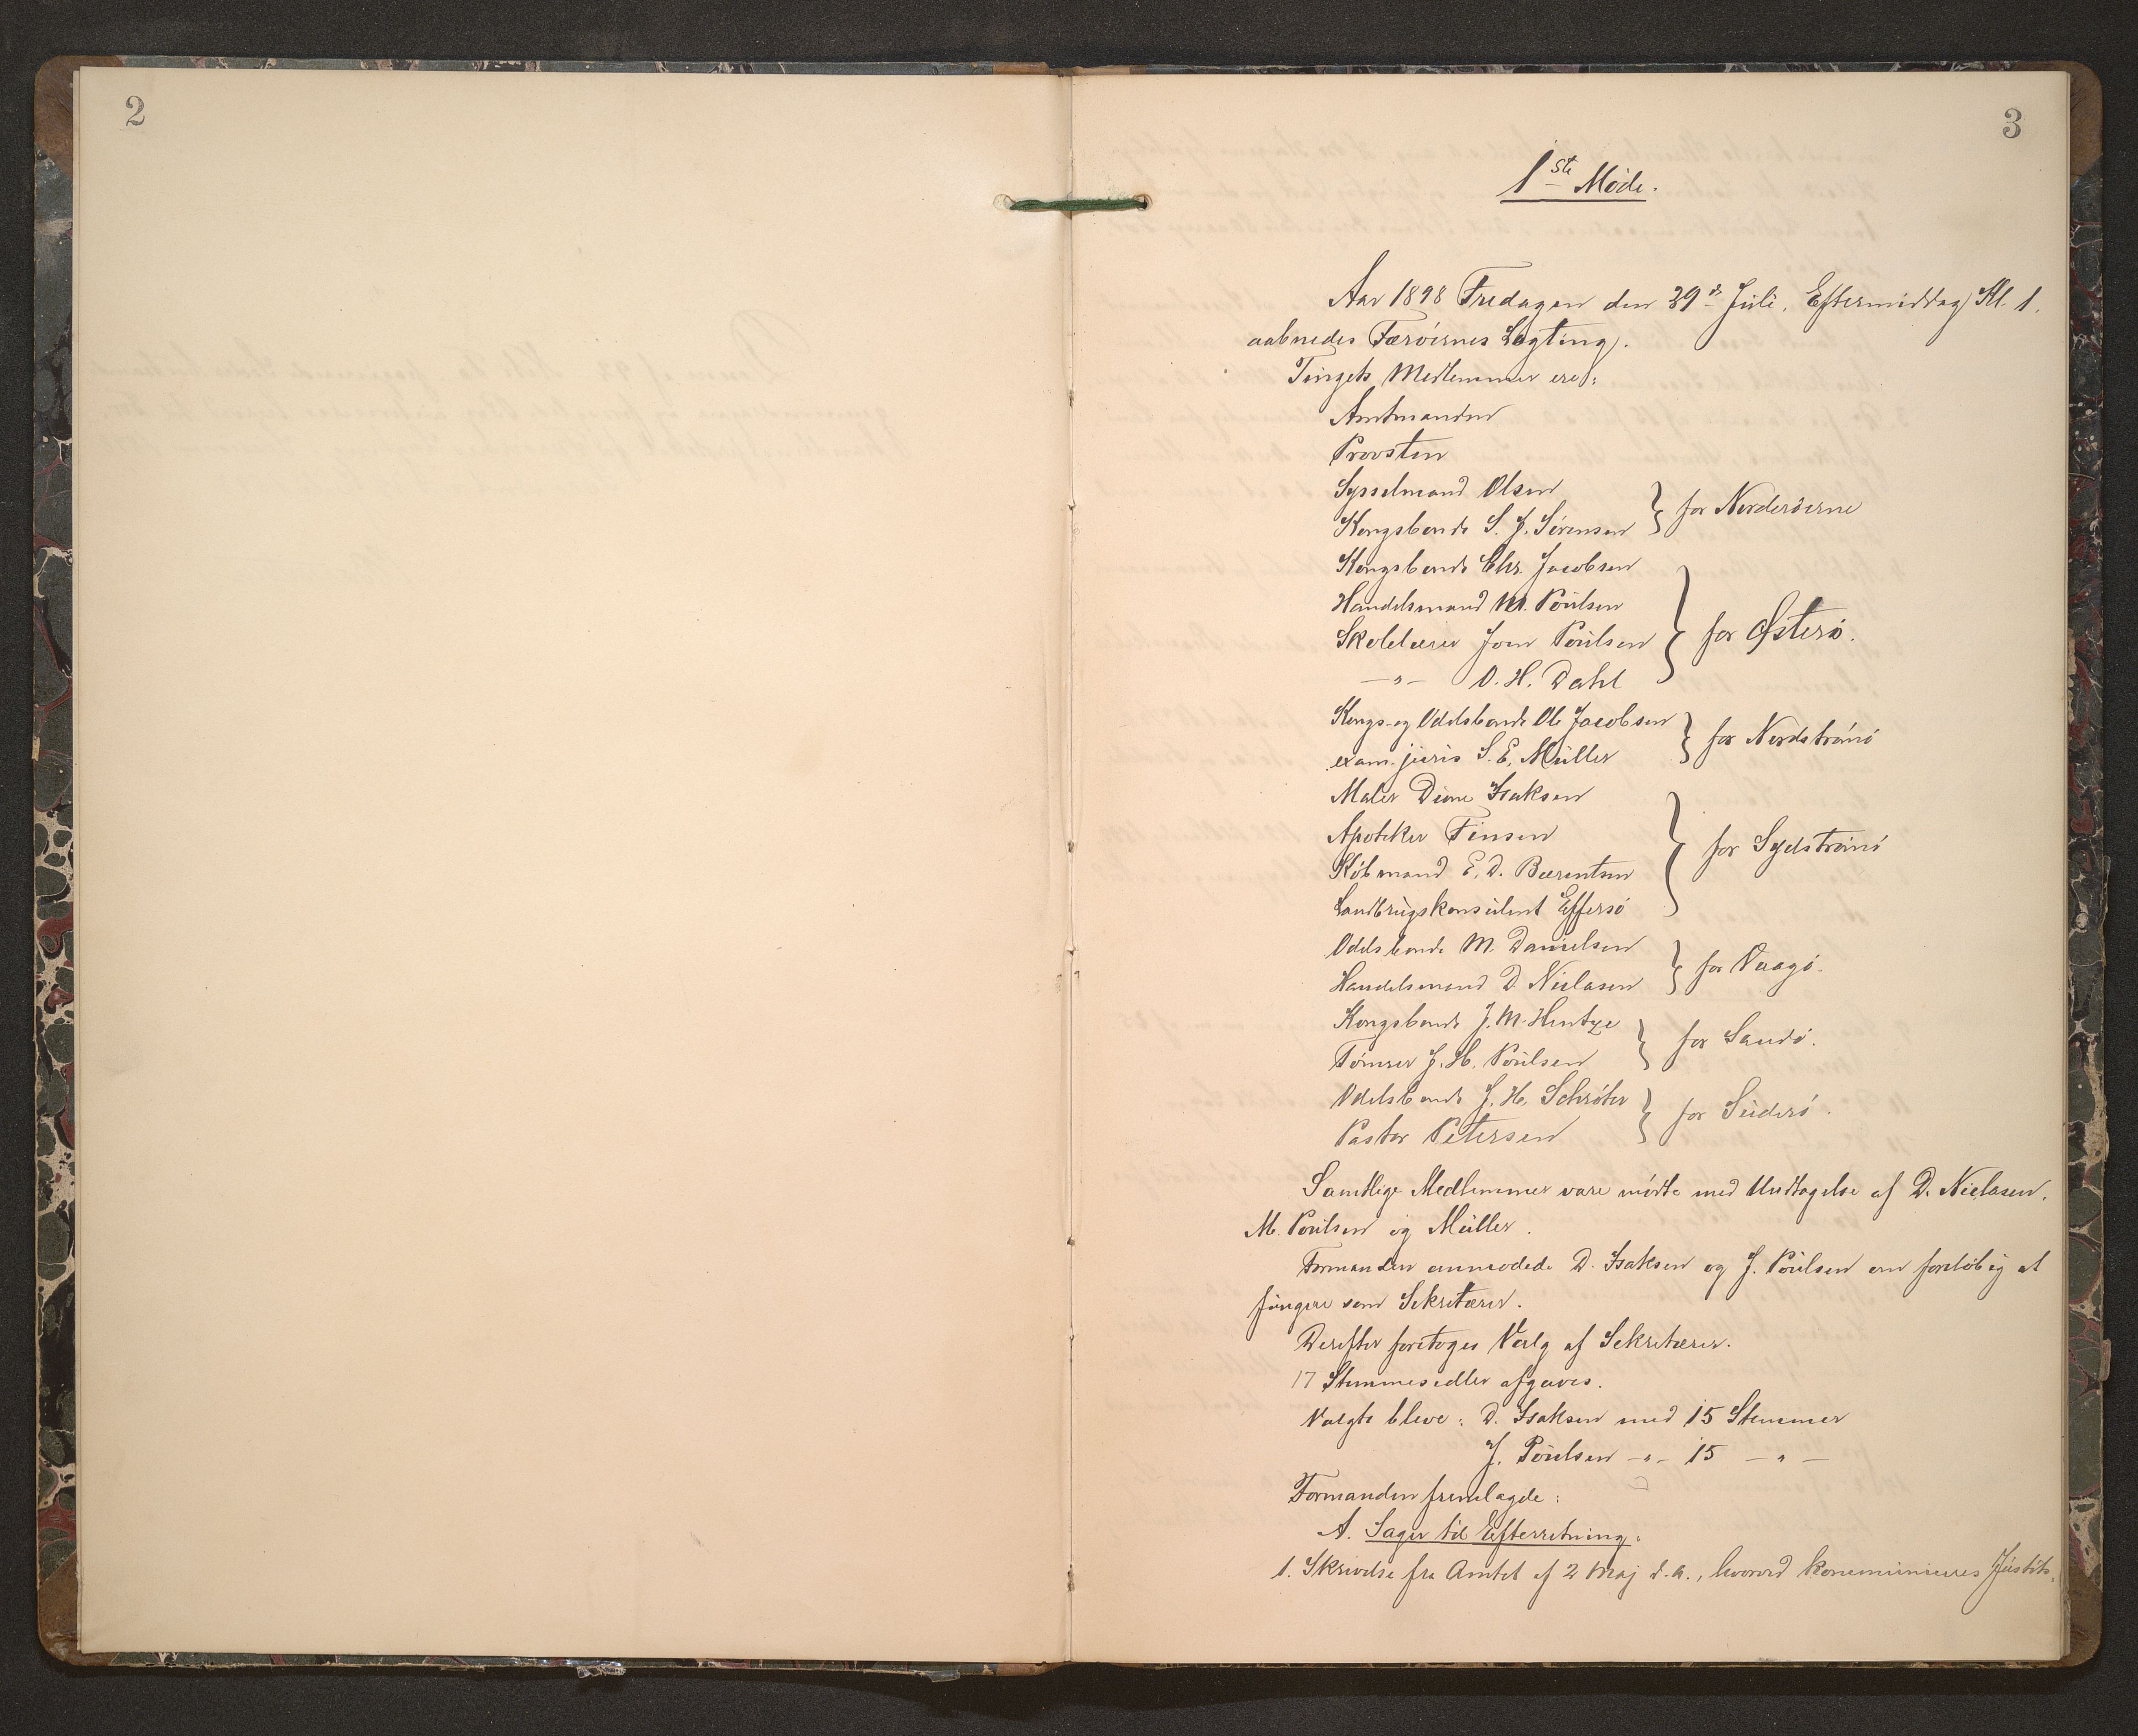 2
3
1ste Møde.
Aar 1898 Fredagen den 29d Juli, Eftermiddag Kl. 1.
aabnedes Færøernes Lagting.
Tingets Medlemmer ere:
Amtmanden
Provsten
Sysselmand Olsen
Kongsbonde S. J. Sørensen } for Norderøerne
Kongsbonde Chr. Jacobsen
Handelsmand M. Poulsen
Skolelærer Joen Poulsen } for Østerø.
—"— O. H. Dahl
Kongs- og Odelsbonde Ole Jacobsen
exam. juris S. E. Müller } for Nordstrømø
Maler Dione Isaksen
Apoteker Finsen
Købmand E. D. Bærentsen } for Sydstrømø
Landbrugskonsulent Effersø
Odelsbonde M. Danielsen
Handelsmand D. Nielasen } for Vaagø.
Kongsbonde J. M. Hentze
Tømrer J. H. Poulsen } for Sandø.
Odelsbonde J. H. Schrøter
Pastor Petersen } for Suderø.
Samtlige Medlemmer vare mødte med Undtagelse af D. Nielasen,
M. Poulsen og Müller.
Formanden anmodede D. Isaksen og J. Poulsen om foreløbig at
fungere som Sekretærer.
Derefter foretoges Valg af Sekretærer.
17 Stemmesedler afgaves.
Valgte bleve: D. Isaksen med 15 Stemmer
J. Poulsen —"— 15 —"—
Formanden fremlagde:
A. Sager til Efterretning:
1. Skrivelse fra Amtet af 2 Maj d. A., hvorved kommunieres Justits-